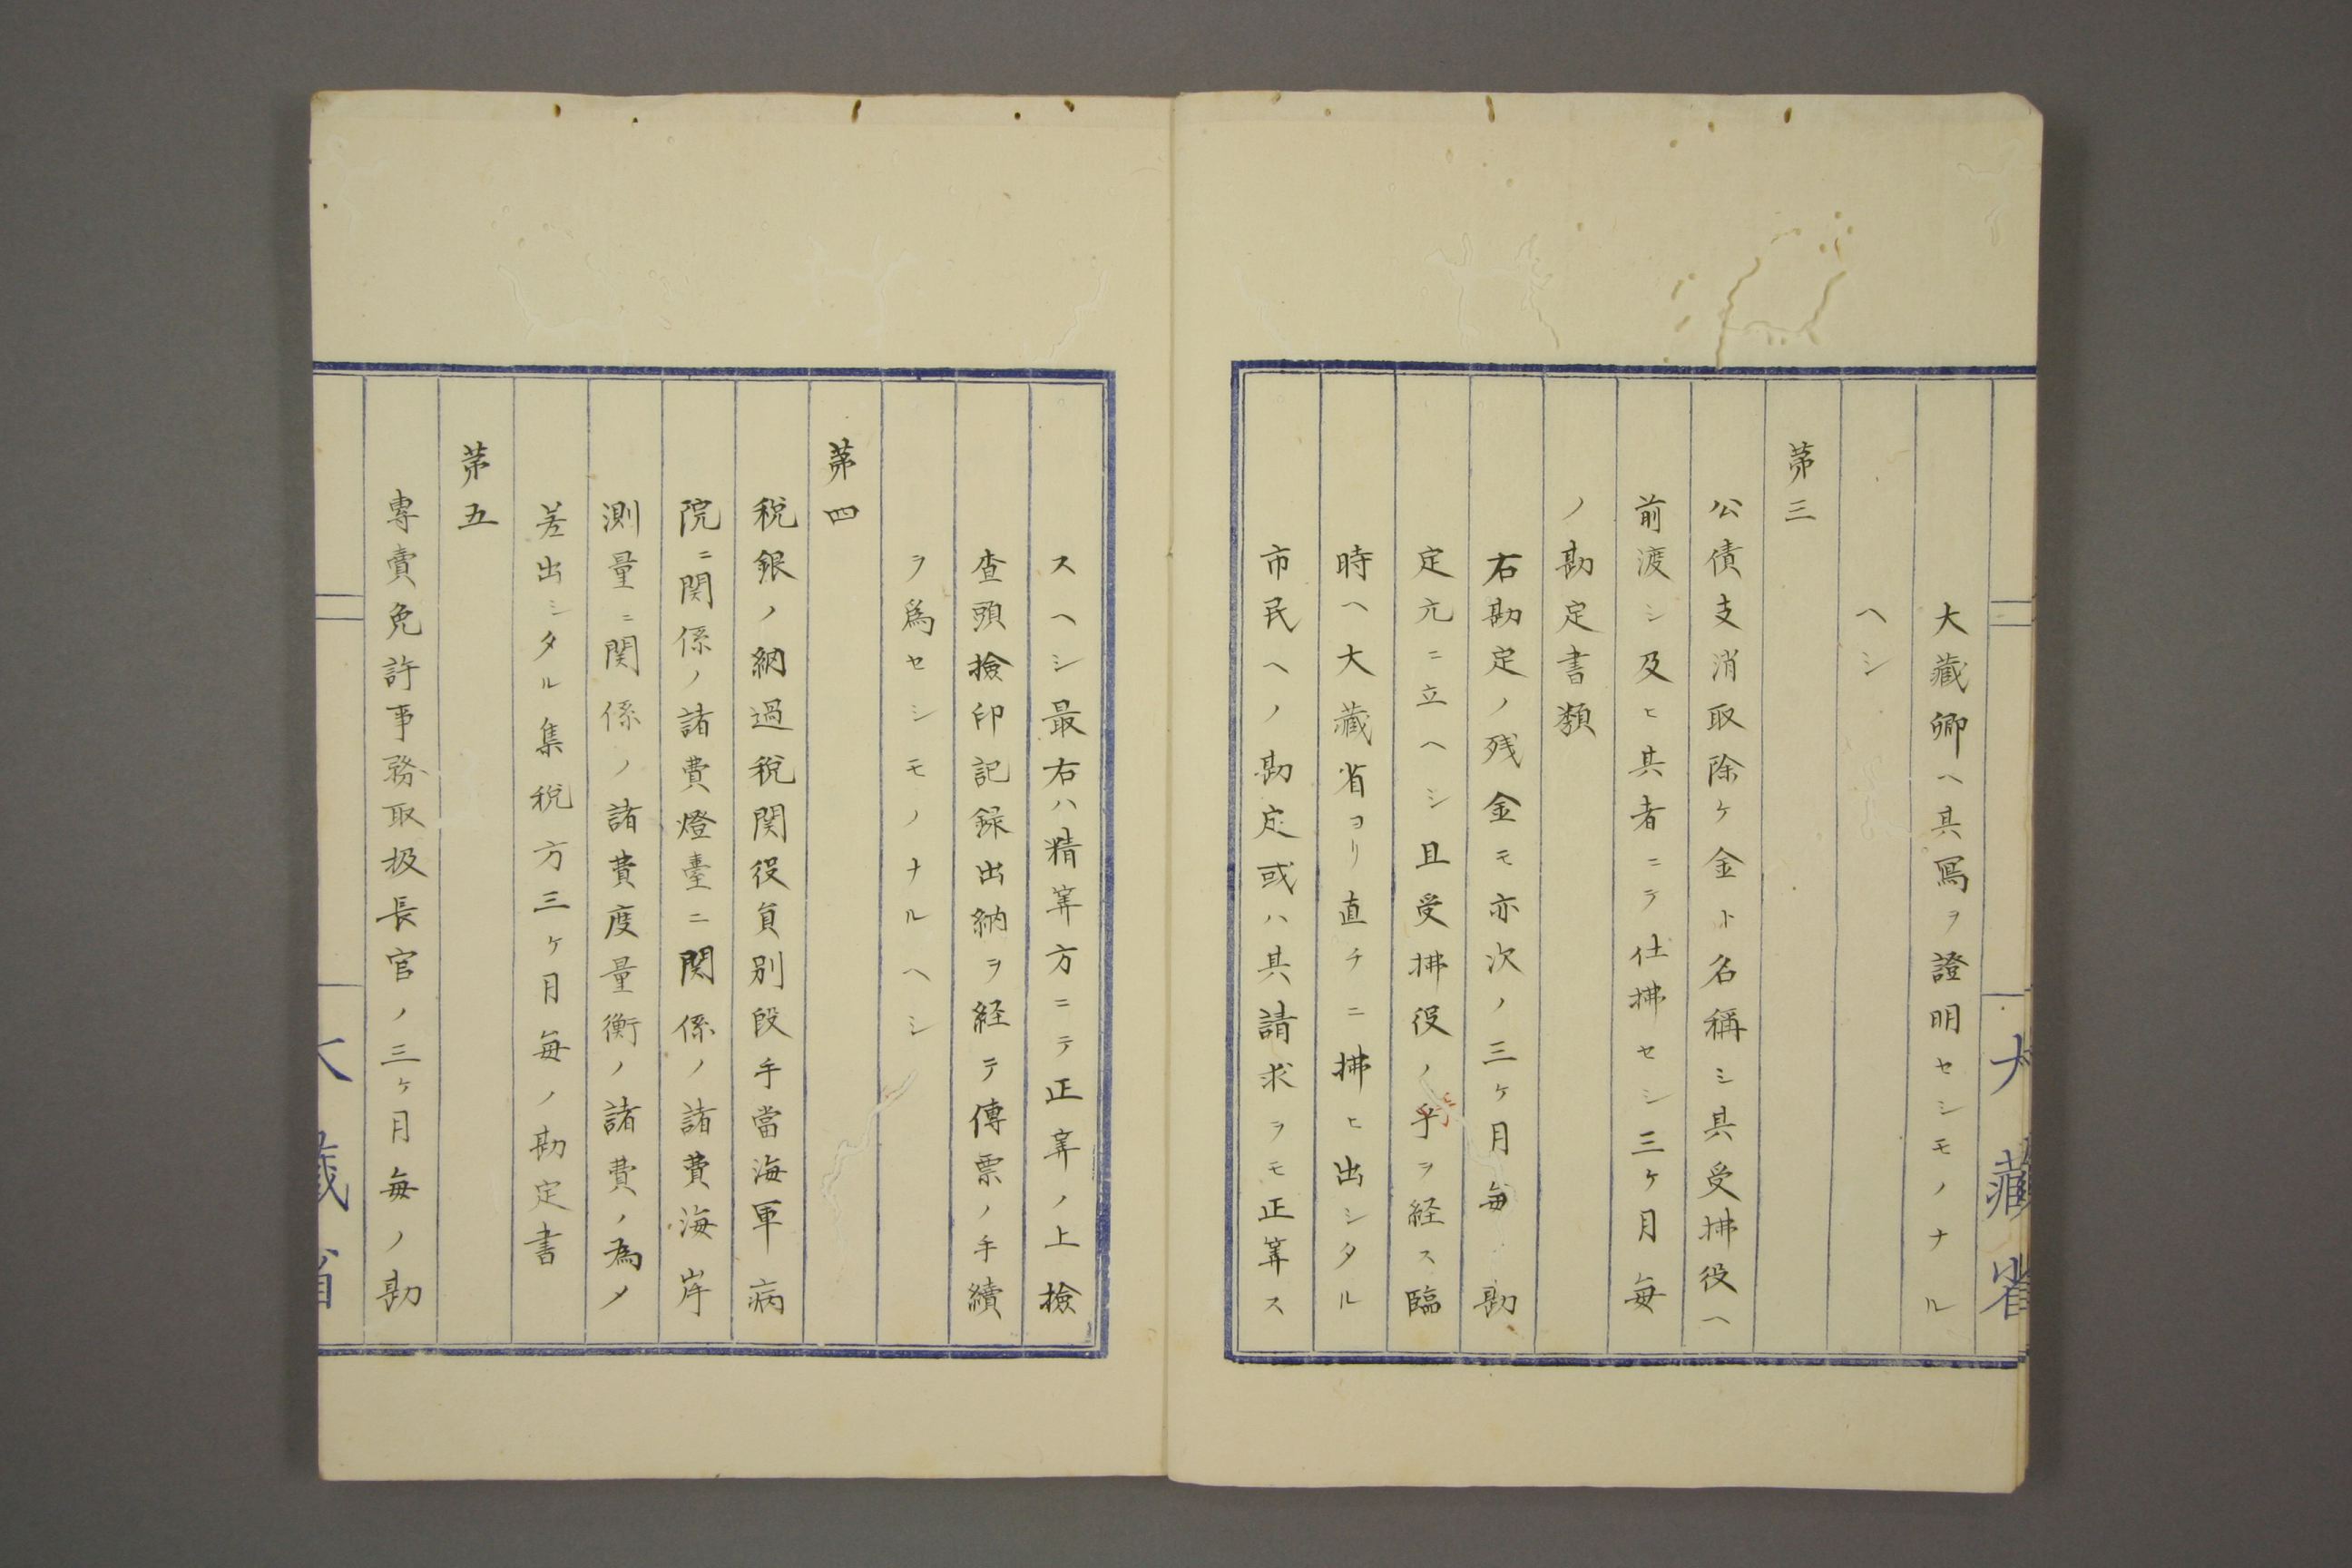 大藏省
大藏卿ヘ其寫ヲ證明セシモノナル
ヘシ
第三
公債支消取除ケ金ト名稱シ其受拂役ヘ
前渡シ及ヒ其者ニテ仕拂セシ三ヶ月毎
ノ勘定書類
右勘定ノ残金モ亦次ノ三ヶ月毎勘
定元ニ立ヘシ且受拂役ノ手ヲ経ス臨
時ヘ大藏省ヨリ直チニ拂ヒ出シタル
市民ヘノ勘定或ハ其請求ヲモ正筭ス
スヘシ最右ハ精筭方ニテ正筭ノ上撿
查頭撿印記録出納ヲ経テ傳票ノ手續
ヲ爲セシモノナルヘシ
第四
税銀ノ納過税関役員別段手當海軍病
院ニ関係ノ諸費燈臺ニ関係ノ諸費海岸
測量ニ関係ノ諸費度量衡ノ諸費ノ為メ
差出シタル集税方三ヶ月毎ノ勘定書
第五
專賣免許事務取扱長官ノ三ヶ月毎ノ勘
大藏省